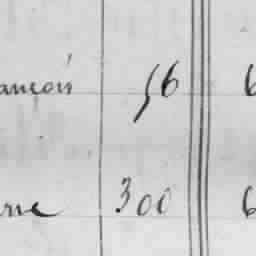 ançois 56 6
rre 300 6